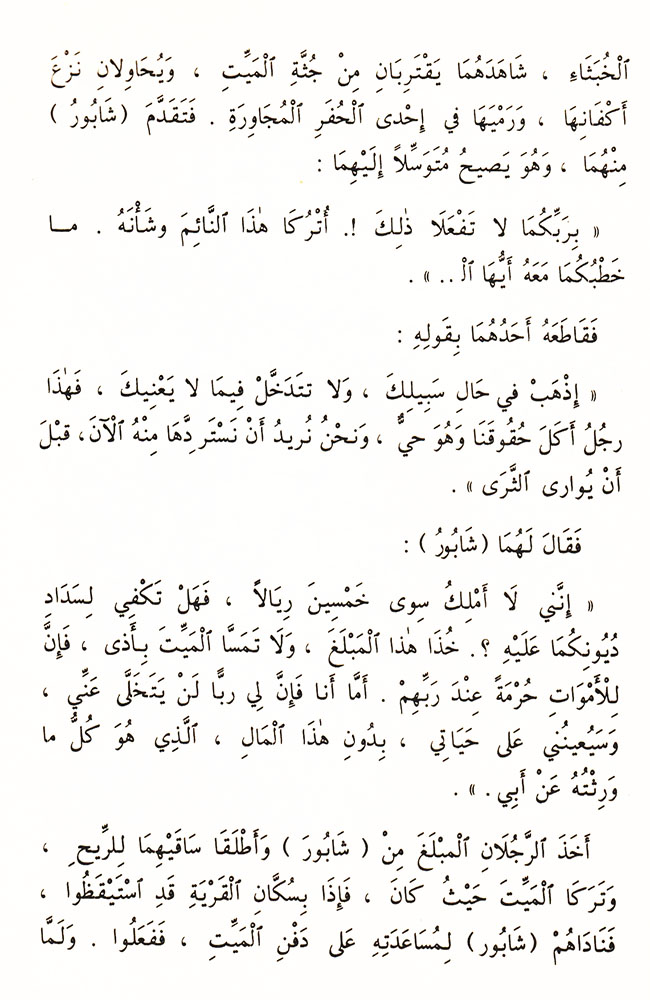 ٱلْخُبَثَاءِ ، شَاهَدَهُمَا يَقْتَرِبَانِ مِنْ جُثَّةِ ٱلْمَيِّتِ ، وَيُحَاوِلانِ نَزْعَ
أَكْفَانِهَا ، وَرَمْيَهَا في إِحْدى ٱلْحُفَرِ ٱلْمُجَاوِرَةِ . فَتَقَدَّمَ (شَابُورُ )
مِنْهُمَا ، وَهُوَ يَصيحُ مُتَوَسِّلاً إِلَيْهِمَا :
« بِرَبِّكُمَا لا تَفْعَلَا ذٰلِكَ !. أُتْرُكَا هٰذَا ٱلنَّائِمَ وشَأْنَهُ . مـا
خَطْبُكُمَا مَعَهُ أَيُّهَا ٱلْـ .. » .
فَقَاطَعَهُ أَحَدُهُمَا بِقَولِهِ :
« إِذْهَبْ في حَالِ سَبِيلِكَ ، وَلا تتَدَخَّلْ فِيمَا لا يَعْنِيكَ ، فَهٰذَا
رجُلُ أَكَلَ حُقُوقَنَا وَهُوَ حيٌّ ، وَنحْنُ نُريدُ أَنْ نَسْتَردَّهَا مِنْهُ ٱلْآنَ، قبْلَ
أَنْ يُوارى ٱلثَّرَى » .
فَقَالَ لَهُمَا (شَابُورُ ) :
« إِنَّني لَا أَمْلِكُ سِوى خَمْسِينَ رِيَالاً ، فَهَلْ تَكْفِي لِسَدَادِ
دُيُونِكُمَا عَلَيْهِ ؟. خُذَا هٰذا ٱلْمَبْلَغَ ، وَلَا تَمَسَّا ٱلْمَيِّتَ بِأَذى ، فَإِنَّ
لِلْأَمْوَاتِ حُرْمَةً عِنْدَ رَبِّهِمْ . أَمَّا أَنا فَإِنَّ لِي ربًّا لَنْ يَتَخَلَّى عَنِّي ،
وَسَيُعينُني عَلى حَيَاتِي ، بِدُونِ هٰذَا ٱلْمَالِ ، ٱلَّذِي هُوَ كُلُّ ما
وَرِثْتُهُ عَنْ أَبِي. » .
أَخَذَ ٱلرَّجُلَانِ ٱلْمبْلَغَ مِنْ ( شَابُورَ ) وَأَطْلَقَا سَاقَيْهِمَا لِلرِّيحِ ،
وَتَرَكَا ٱلْمَيِّتَ حَيْثُ كَانَ ، فَإِذَا بِسُكَّانِ ٱلْقَرْيَةِ قَدِ ٱسْتَيْقَظُوا ،
فَنَادَاهُمْ (شَابُور) لِمُسَاعَدَتِهِ عَلى دَفْنِ ٱلْمَيِّتِ ، فَفَعَلُوا . وَلَمَّا